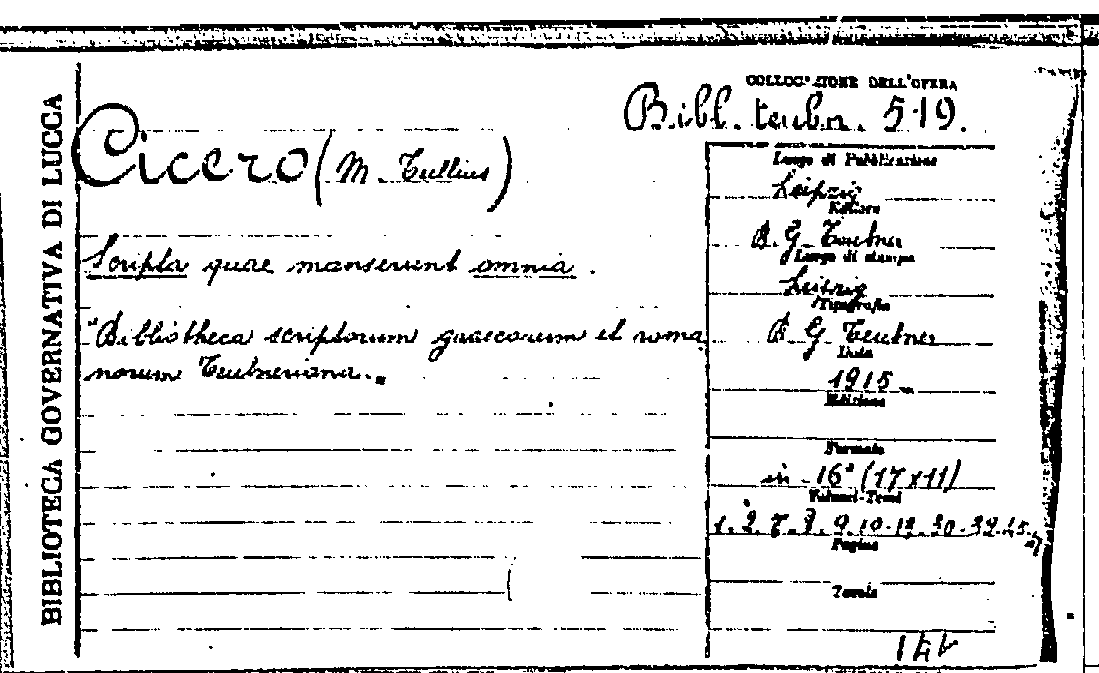 BIBLIOTECA GOVERNATIVA DI LUCCA
COLLOCAZIONE DELL'OPERA
Bibl. teubn. 519.
Cicero (M. Tullius)
Scripta quae manserunt omnia.
"Bibliotheca scriptorum graecorum et roma
norum Teubneriana."
Luogo di Pubblicazione
Leipzig
Editore
B. G. Teubner
Luogo di stampa
Leipzig
Tipografia
B G Teubner
Data
1915
Edizione
Formato
in - 16° (17 x 11)
Volumi-Tomi
1. 2. 7. 8. 9. 10-12. 30-39.
Pagine
Tavole